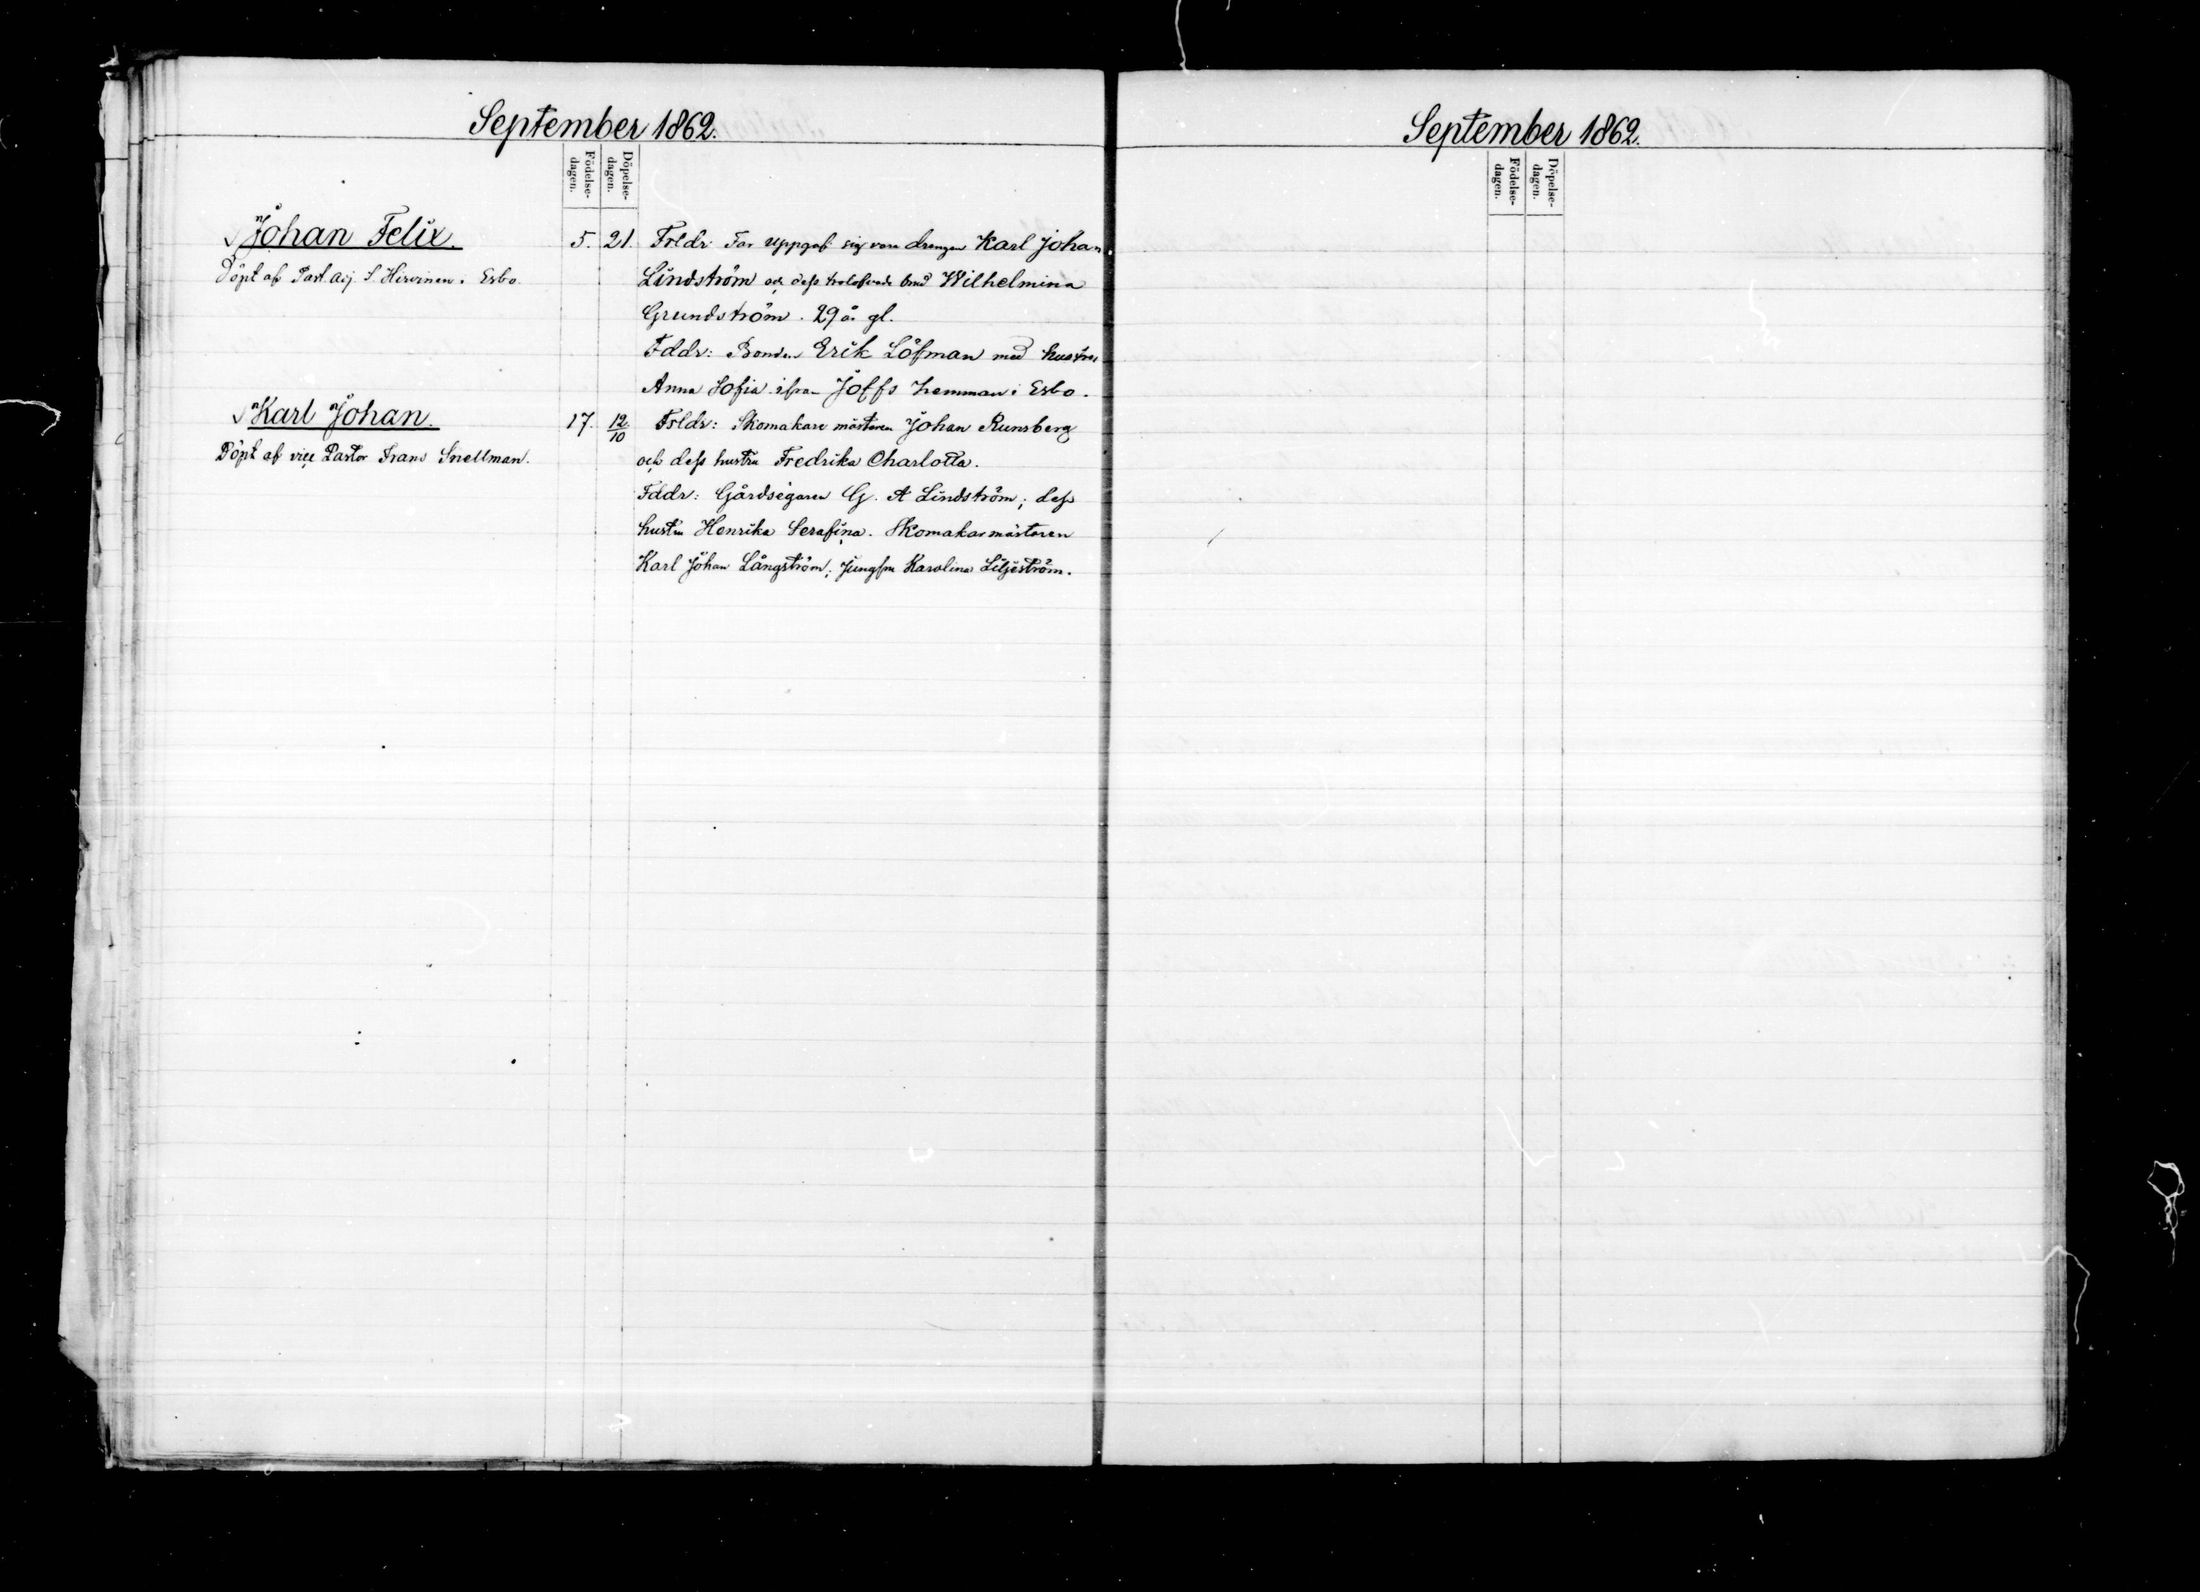 September 1862.
Födelse-
dagen.
Döpelse-
dagen.
Johan Felix.
5. 21. Frldr. Far uppgaf sig vara drengen Karl Johan
Döpt af Past. Adj. S. Hirvinen i Esbo.
Lindström och dess trolofvade brud Wilhelmina
Grundström. 29 år gl.
Fddr: Bonden Erik Löfman med hustru
Anna Sofia ifrån Joffs hemman i Esbo.
Karl Johan.
17. 12/10 Frldr: Skomakare mästaren Johan Runsberg
Döpt af vice Pastor Frans Snellman.
och dess hustru Fredrika Charlotta.
Fddr: Gårdsegaren G. A Lindström; dess
hustru Henrika Serafina. Skomakarmästaren
Karl Johan Långström; Jungfru Karolina Liljeström.
September 1862.
Födelse-
dagen.
Döpelse-
dagen.